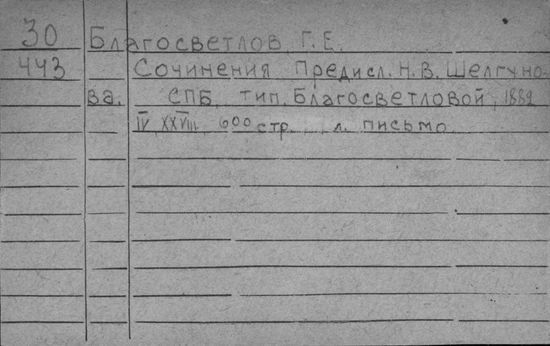 30 Благосветлов Г. Е.
443 Сочинения Предисл. Н. В. Шелгуно-
ва. СПБ, тип. Благосветловой, 1882
IV, XXVIII, 600 стр. л. письмо